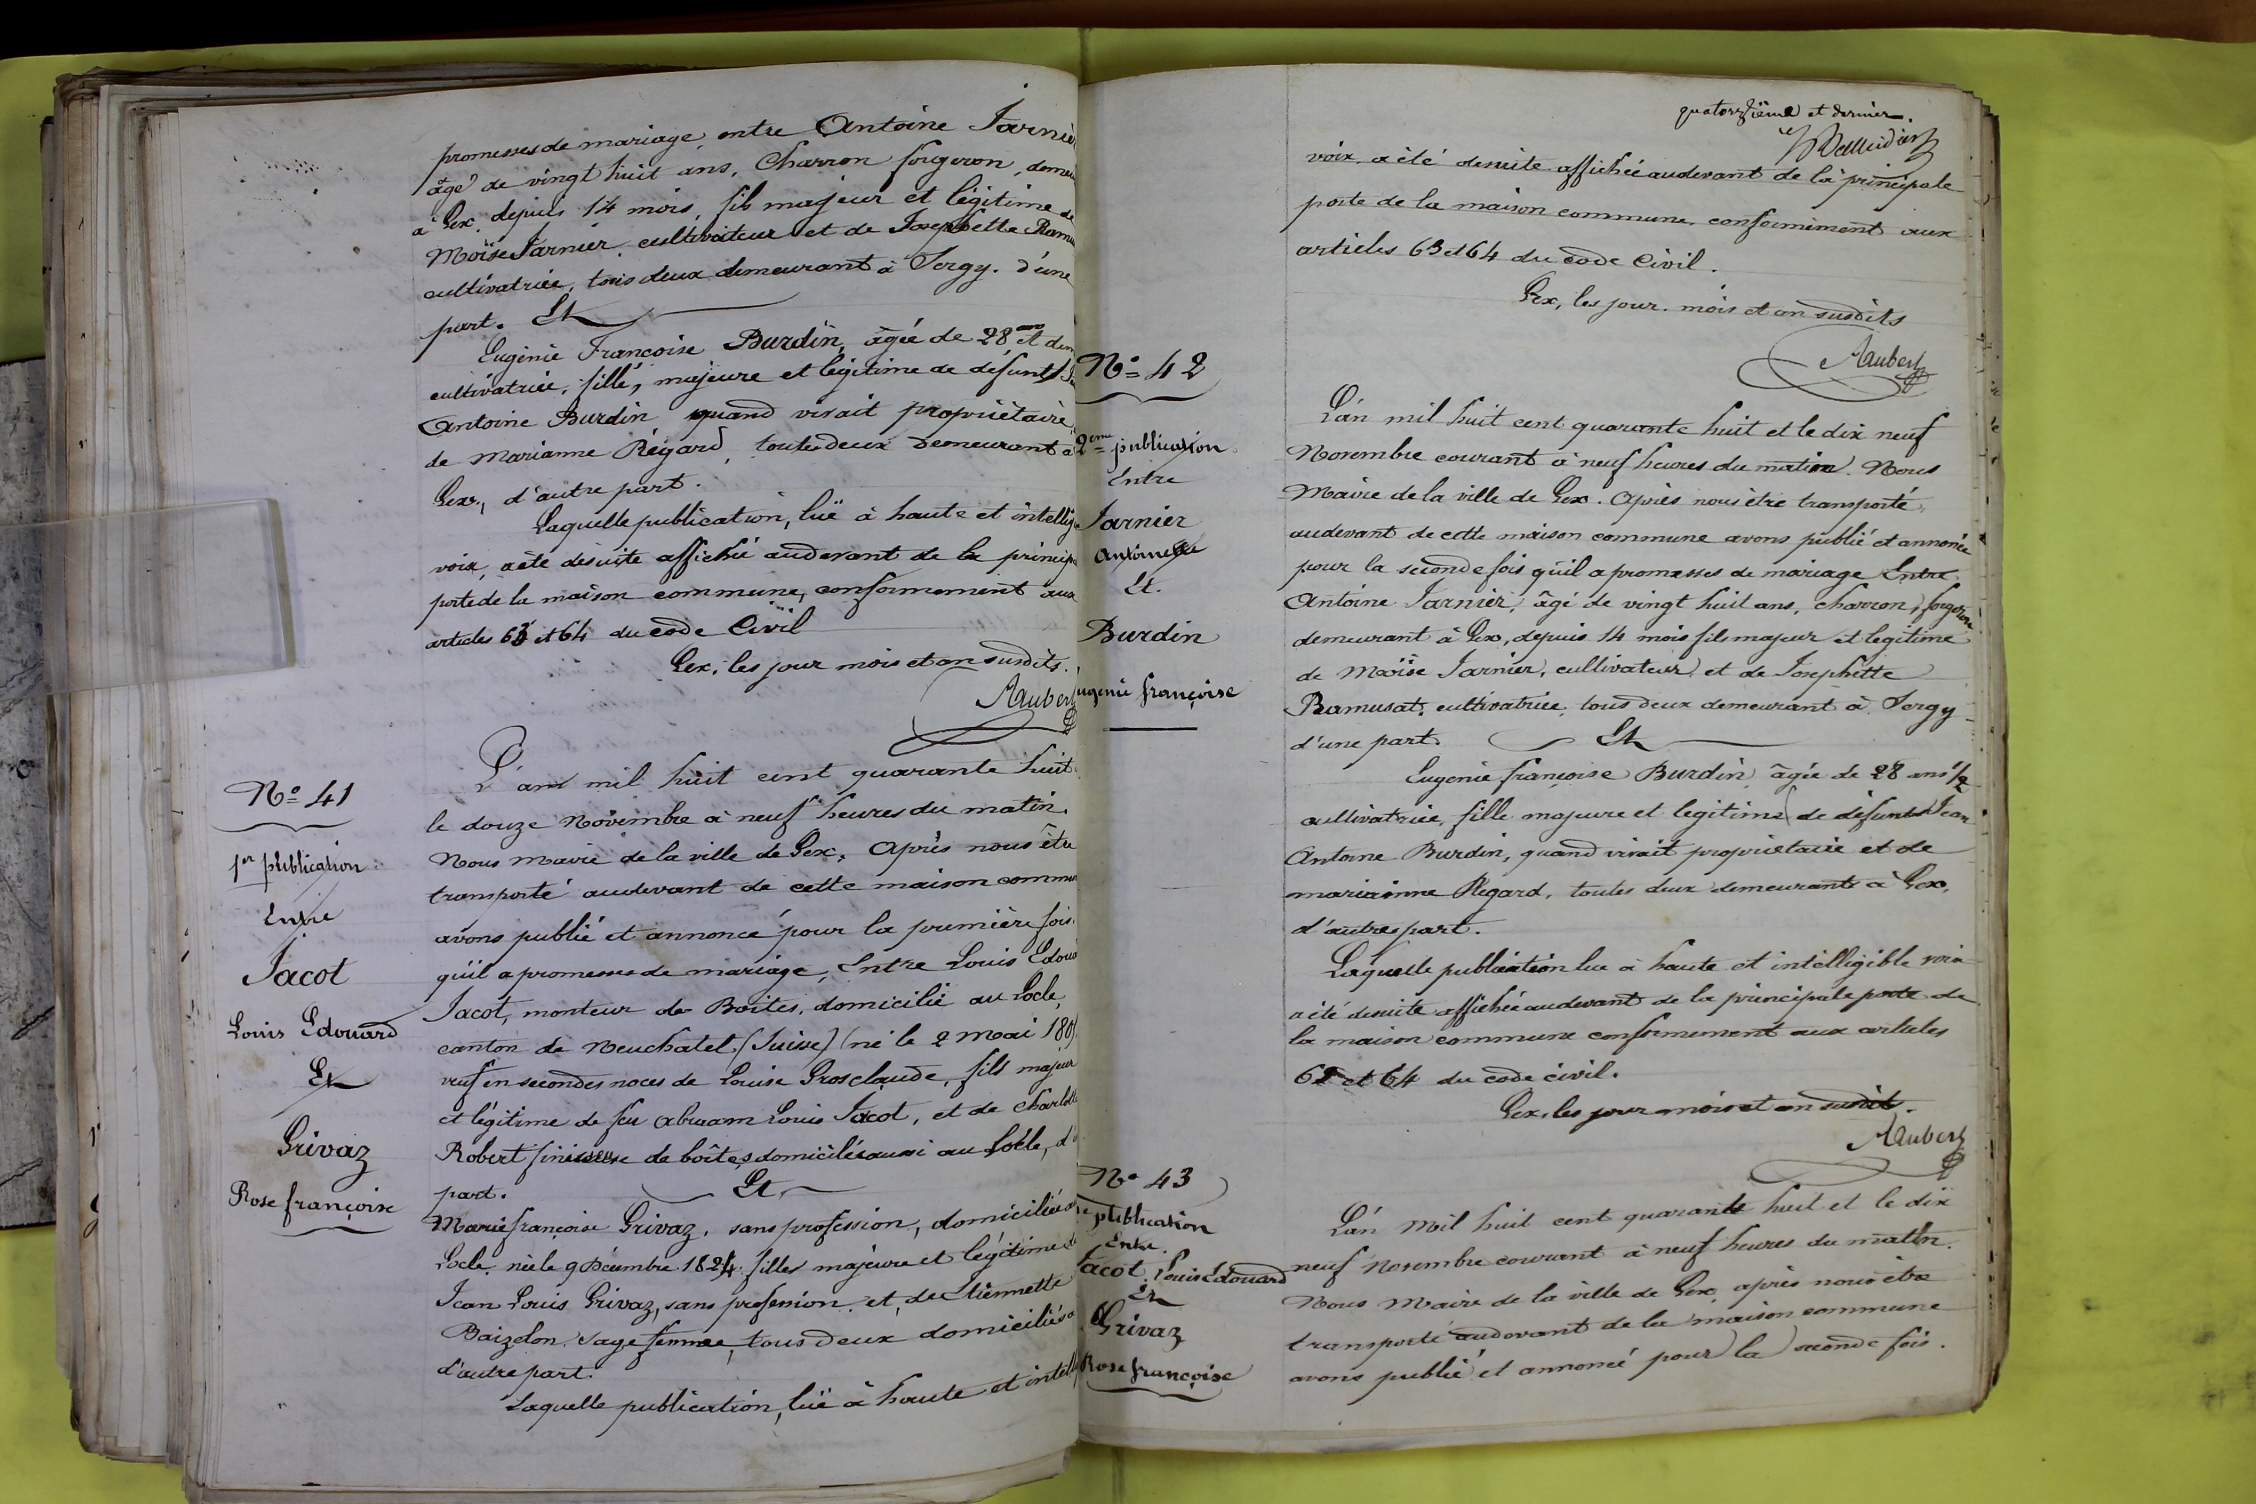 promesses de mariage, entre Antoine Jarnier
âgé de vingt huit ans, Charron forgeron, demeu
à Gex, depuis 14 mois, fils majeur et légitime de
Moïse Jarnier, cultivateur et de Josephette Ramu
cultivatrice, tous deux demeurant à Sergy. d'une
part. Et
Eugénie Françoise Burdin, âgée de 28 ans et dem
cultivatrice, fille, majeure et légitime de défunt
Antoine Burdin quand vivait propriètaire,
de Marianne Régard, toutes deux demeurant à
Gex, d'autre part.
Laquelle publication, lüe à haute et intellig
voix, a été desuite affichée audevant de la princip
porte de la maison commune, conformement aux
articles 63 et 64 du code Civil
Gex, les jour mois et an susdits.
Aubert
N° 41
1er publication
Entre
Jacot
Louis Edouard
Et
Grivaz
Rose françoise
L'an mil huit cent quarante huit
le douze Novembre à neuf heures du matin.
Nous Maire de la ville de Gex, Après nous être
transporté audevant de cette maison commun
avons publié et annoncé pour la première fois
qu'il a promesses de mariage, Entre Louis Edoua
Jacot, monteur de Boites, domicilié au Locle,
canton de Neuchatel (Suisse) (né le 2 mai 180
veuf en secondes noces de Louise Grosclaude, fils majeur
et légitime de feu abraam Louis Jacot, et de Charlotte
Robert finisseuse de boîtes, domiciliés aussi au Locle, d'
part. Et
Marie françoise Grivaz, sans profession, domiciliée
Locle, née le 9 Décembre 1824 fille majeure et légitime de
Jean Louis Grivaz, sans profession, et de Etiennette
Baizelon, Sage femme, tous deux domiciliés a
d'autre part.
Laquelle publication, lüe à haute et intell
quatorzième et dernier.
voix a été desuite affichée audevant de la principale
porte de la maison commune, conformément aux
articles 63 et 64 du code Civil.
Gex, les jour. mois et an susdits
Aubert
N° 42
2eme publication
Entre
Jarnier
Antoine
Et.
Burdin
ugenie françoise
L'an mil huit cent quarante huit et le dix neuf
Novembre courant à neuf heures du matin. Nous
Maire de la ville de Gex. Après nous être transporté
audevant de cette maison commune avons publié et annoncé
pour la seconde fois qu'il a promesses de mariage Entre
Antoine Jarnier, âgé de vingt huit ans, charron, forgeron
demeurant à Gex, depuis 14 mois fils majeur et legitime
de Moïse Jarnier, cultivateur, et de Josephette
Ramusat, cultivatrice, tous deux demeurant à Sergy
d'une part. Et
Eugenie françoise Burdin, âgée de 28 ans 1/2
cultivatrice, fille majeure et legitime de défunt Jean
Antoine Burdin, quand vivait propriétaire et de
marianne Regard, toutes deux demeurants à Gex,
d'autre part.
Laquelle publication lue à haute et intelligible voix
a été desuite affichée audevant de la principale porte de
la maison commune conformement aux articles
63 et 64 du code civil.
Gex, les jour mois et an susdit.
Aubert
N° 43
publication
Entre.
Jacot, Louis Edouard
Et
Grivaz
Rose françoise
L'an Mil huit cent quarante huit et le dix
neuf Novembre courant à neuf heures du matin.
Nous Maire de la ville de Gex, après nous être
transporté audevant de la maison commune
avons publié et annoncé pour la seconde fois.